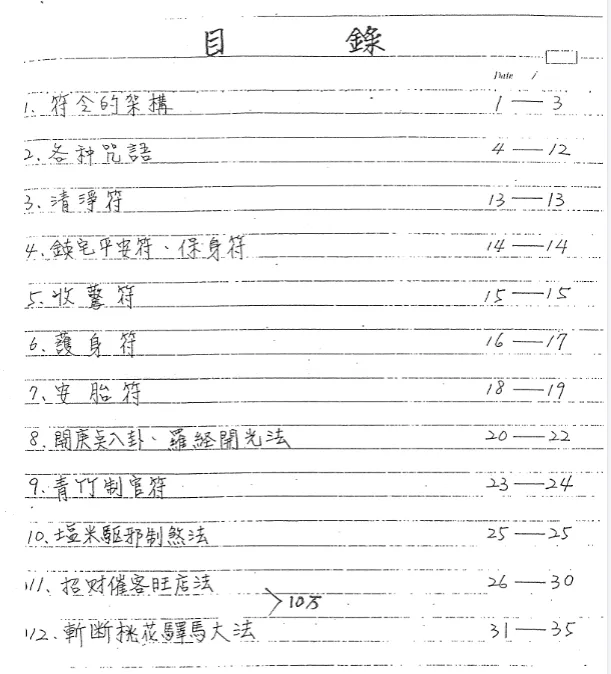 目 錄
Date /
1. 符令的架構 1 — 3
2. 各种咒語 4 — 12
3. 清淨符 13 — 13
4. 鎮宅平安符、保身符 14 — 14
5. 收驚符 15 — 15
6. 護身符 16 — 17
7. 安胎符 18 — 19
8. 開庚吳八卦、羅經開光法 20 — 22
9. 青竹制官符 23 — 24
10. 塩米驅邪制煞法 25 — 25
11. 招财催客旺店法 26 — 30
>10万
12. 斬断桃花驛馬大法 31 — 35